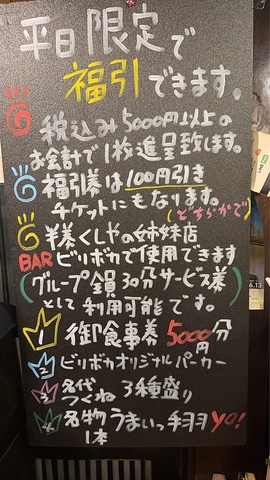 平日限定で
福引できます。
税込み5000円以上の
お会計で1枚進呈致します。
福引券は100円引き
チケットにもなります。
(どちらかで)
半兵くしやの姉妹店
BARビリボカで使用できます
(グループ全員30分サービス券
として利用可能です。)
1 御食事券5000円分
2 ビリボカオリジナルパーカー
3 名代つくね 3種盛り
4 名物うまいっ手羽 YO!
1本